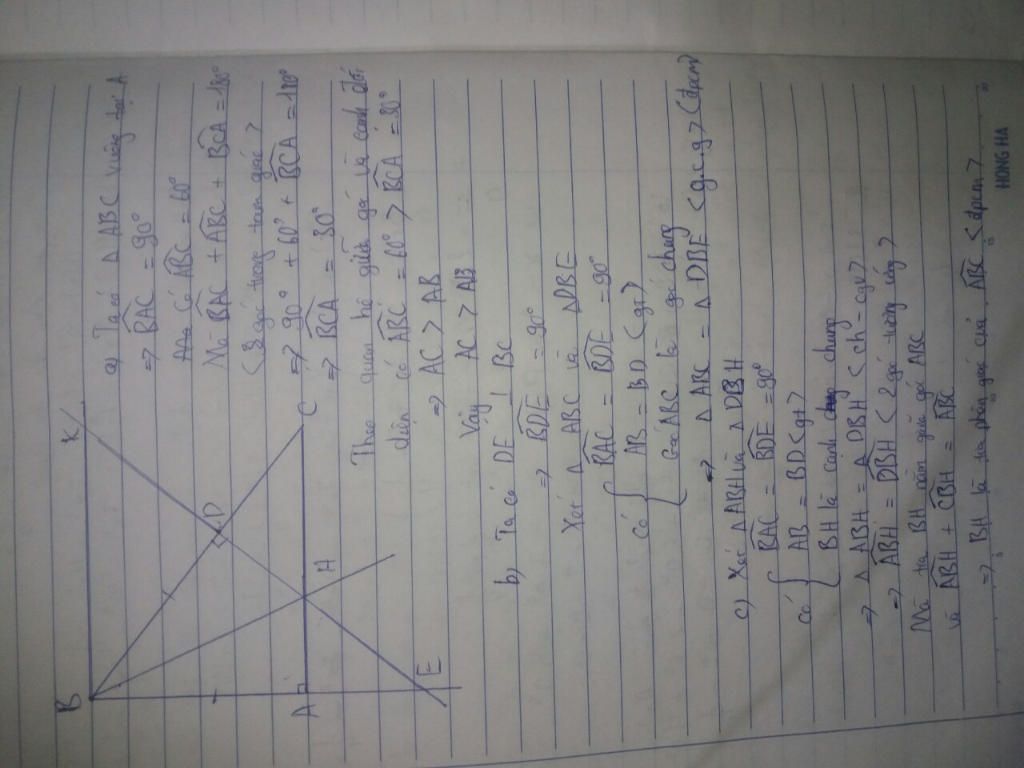 B
K
D
C
A
H
E
a) Ta có △ ABC vuông tại A
=> BAC = 90°
Có ABC = 60°
Mà BAC + ABC + BCA = 180°
< 3 góc trong tam giác >
=> 90° + 60° + BCA = 180°
=> BCA = 30°
Theo quan hệ giữa góc và cạnh đối
diện có ABC = 60° > BCA = 30°
=> AC > AB
Vậy AC > AB
b) Ta có DE ⊥ BC
=> BDE = 90°
Xét △ ABC và △DBE
Có { BAC = BDE = 90°
AB = BD < gt >
Góc ABC là góc chung
=> △ ABC = △ DBE < g.c.g > < đpcm >
c) Xét △ ABH và △ DBH
Có { BAC = BDE = 90°
AB = BD < gt >
BH là cạnh chung
=> △ ABH = △ DBH < ch - cgv >
=> ABH = DBH < 2 góc tương ứng >
Mà tia BH nằm giữa góc ABC
và ABH + CBH = ABC
=> BH là tia phân giác của ABC < đpcm >
HONG HA